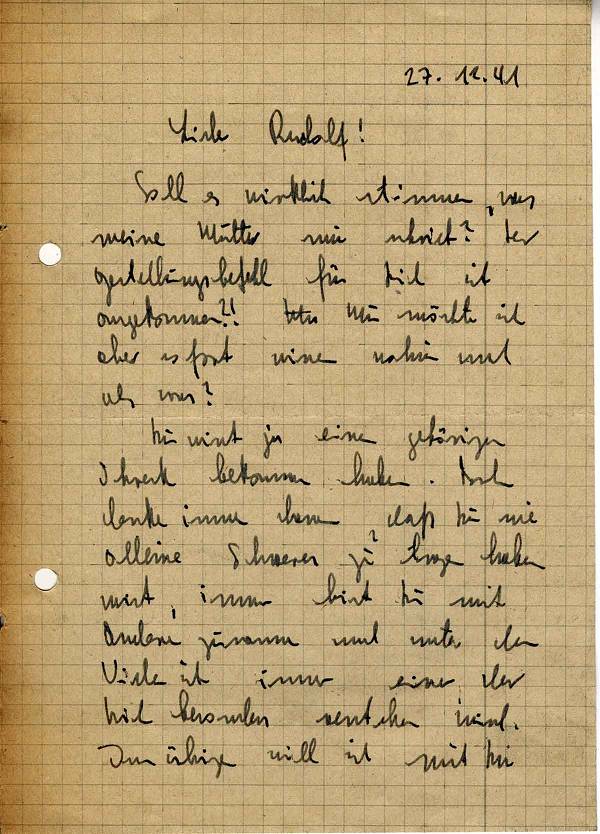 27. 12. 41
Lieber Rudolf!
Soll es wirklich stimmen, was
meine Mutter mir schreibt? Der
Gestellungsbefehl für Dich ist
angekommen?! Nun möchte ich
aber sofort wissen wohin und
als was?
Du wirst ja einen gehörigen
Schreck bekommen haben. Doch
denke immer daran, daß Du nie
alleine Schweres zu tragen haben
wirst, immer bist Du mit
Anderen zusammen und unter den
Vielen ist immer einer der
Dich besonders verstehen wird.
Im übrigen will ich mit Dir